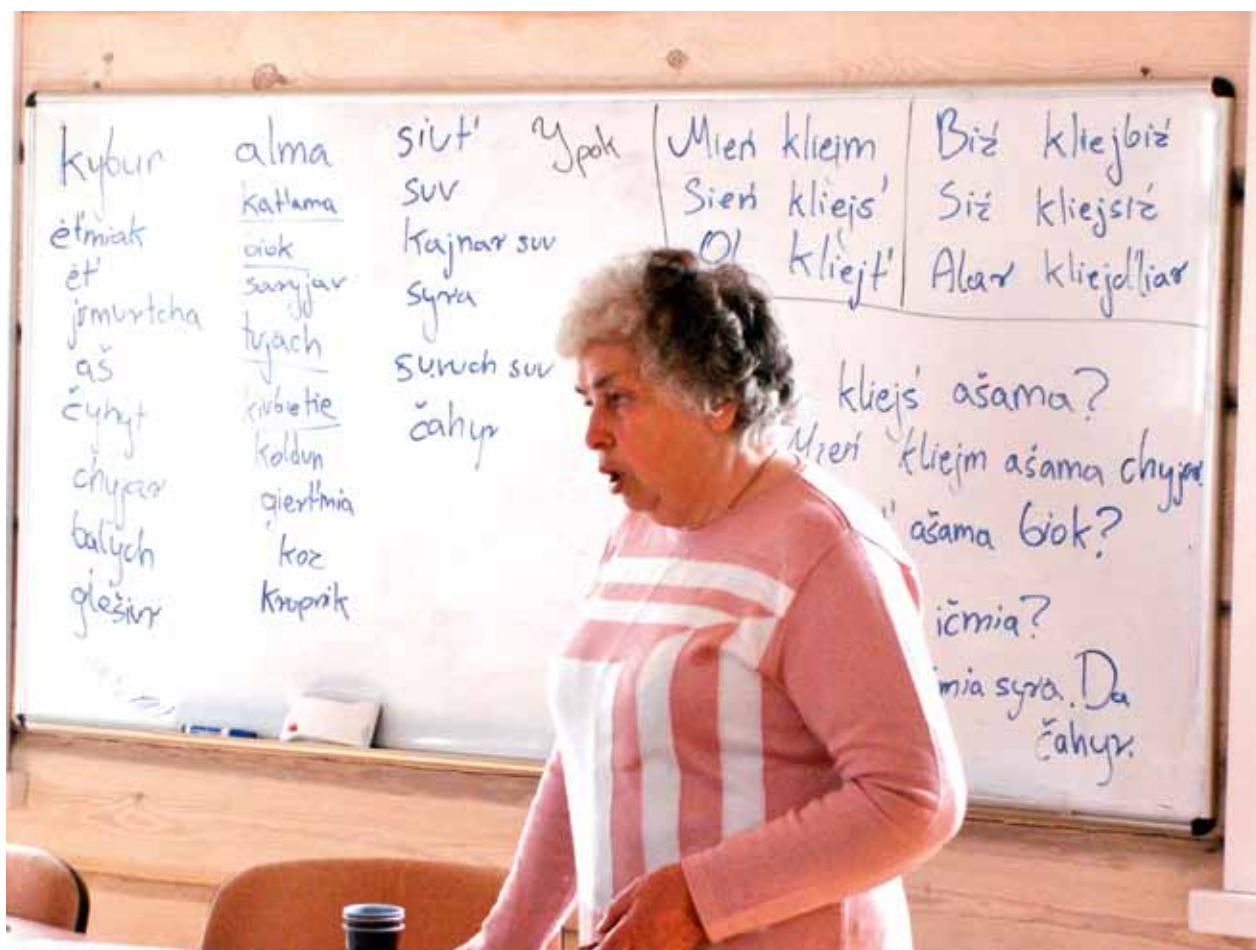 kybyn
ėt́miak
ėt́
jymurtcha
aš
čyhyt
chyjar
balych
alma
kat́lama
saryjav
tujach
koldun
giert́mia
koz
krupnik
siut́
suv
kajnar suv
syra
suvuch suv
čahyr
Mień kliejm
Sień kliejś
Ol kliejt́
Biź kliejbiź
Siź kliejsiź
Alar kliejd́liar
kliejś ašama?
Mień kliejm ašama chyjar.
ašama biok?
ičmia?
mia syra. Da
čahyr.